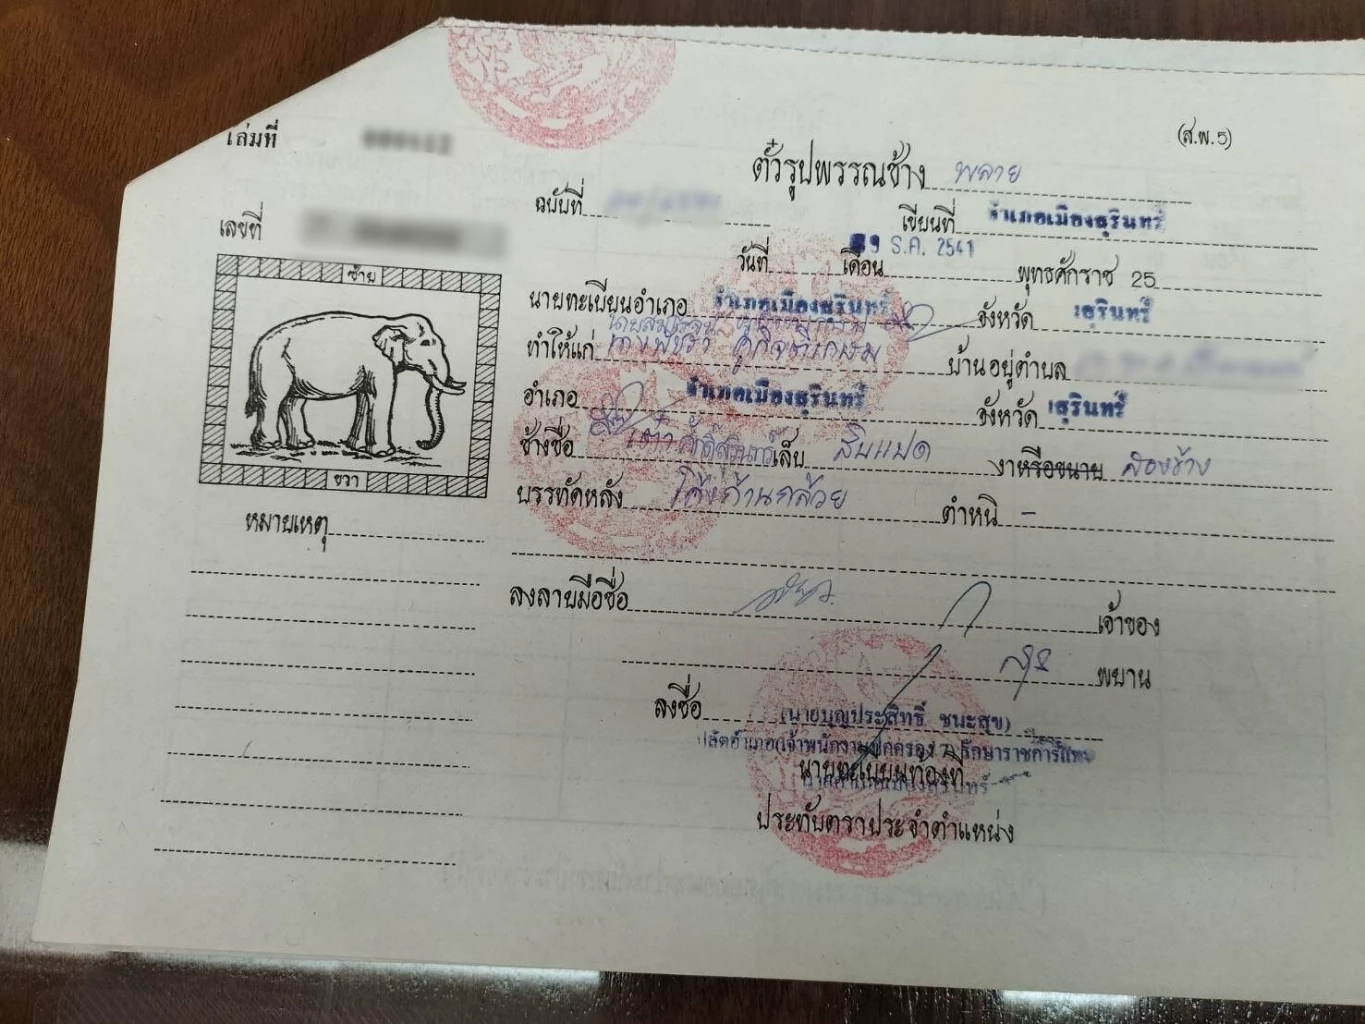 (ส.พ.5)
เล่มที่
ตั๋วรูปพรรณช้าง พลาย
ฉบับที่
เขียนที่ อำเภอเมืองสุรินทร์
เลขที่
วันที่ เดือน ธ.ค. 2541 พุทธศักราช 25
ซ้าย
นายทะเบียนอำเภอ อำเภอเมืองสุรินทร์ จังหวัด สุรินทร์
ทำให้แก่ บ้านอยู่ตำบล
อำเภอ อำเภอเมืองสุรินทร์ จังหวัด สุรินทร์
ช้างชื่อ ศักดิ์สุรินทร์ เล็บ สิบแปด งาหรือขนาย สองข้าง
ขวา
บรรทัดหลัง โค้งก้านกล้วย ตำหนิ -
หมายเหตุ
ลงลายมือชื่อ เจ้าของ
พยาน
ลงชื่อ
(นายบุญประสิทธิ์ ชนะสุข)
ปลัดอำเภอ(เจ้าพนักงานปกครอง 7) รักษาราชการแทน
นายทะเบียนท้องที่
นายอำเภอเมืองสุรินทร์
ประทับตราประจำตำแหน่ง